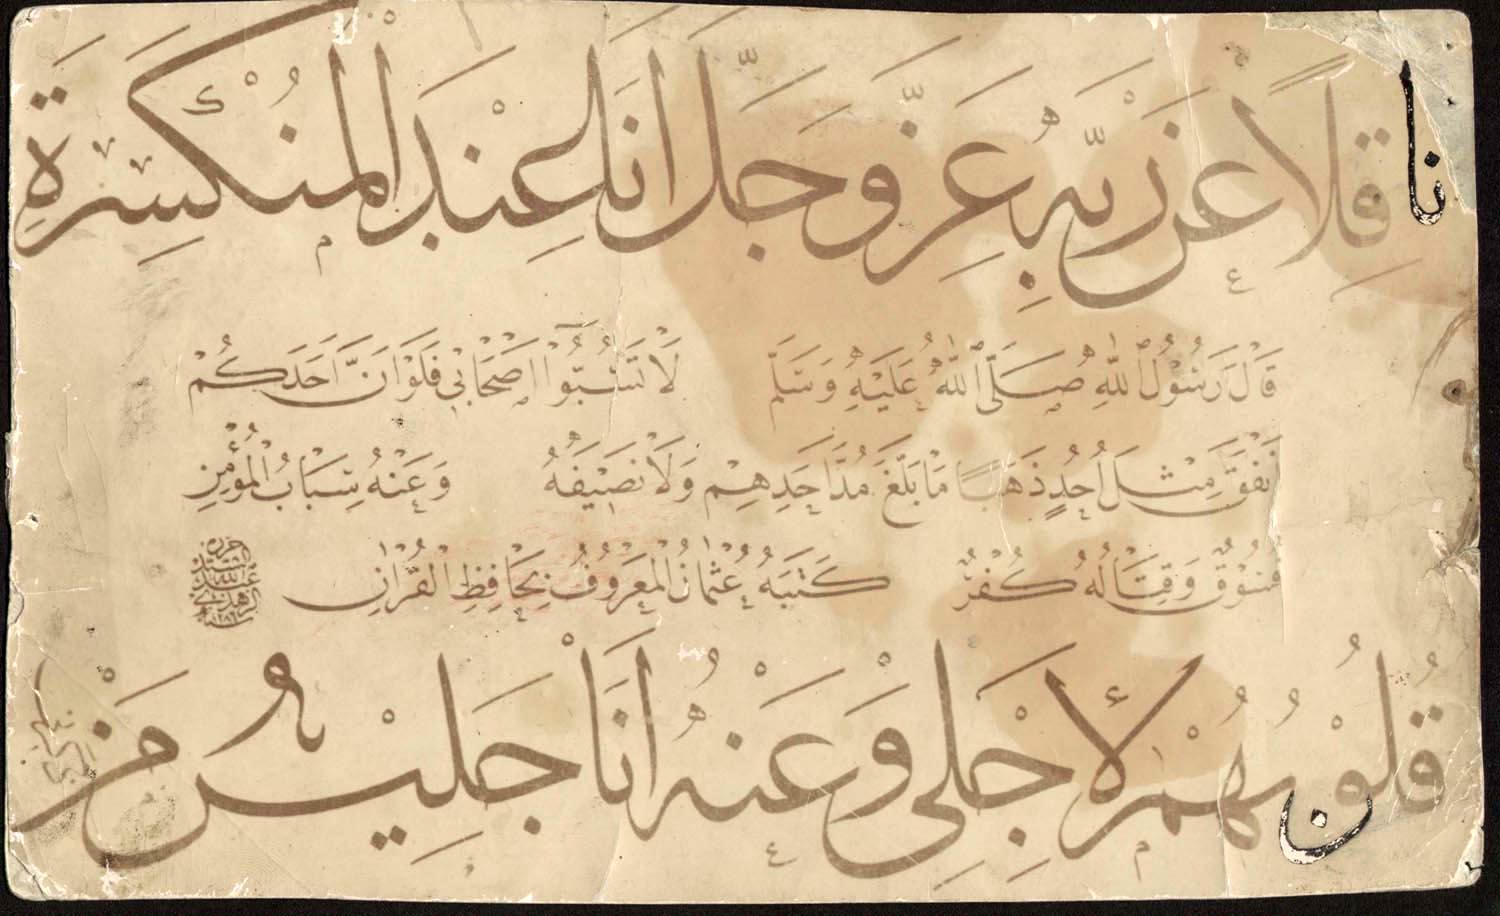 ناقِلًا عَنْ رَبِّهِ عَزَّ وَجَلَّ اَنَا عِنْدَ الْمُنْكَسِرَةِ
قَالَ رَسُولُ اللّٰهِ صَلَّى اللّٰهُ عَلَيْهِ وَسَلَّمَ لَا تَسُبُّوا اَصْحَابِي فَلَوْ اَنَّ اَحَدَكُمْ
نَفَقَ مِثْلَ اُحُدٍ ذَهَبًا مَا بَلَغَ مُدَّ اَحَدِهِمْ وَلَا نَصِيفَهُ وَعَنْهُ سِبَابُ الْمُؤْمِنِ
فُسُوقٌ وَقِتَالُهُ كُفْرٌ كَتَبَهُ عُثْمَانُ الْمَعْرُوفُ بِحَافِظِ الْقُرْاٰنِ
قُلُوبُهُمْ لِأَجْلِي وَعَنْهُ اَنَا جَلِيسُ مَنْ